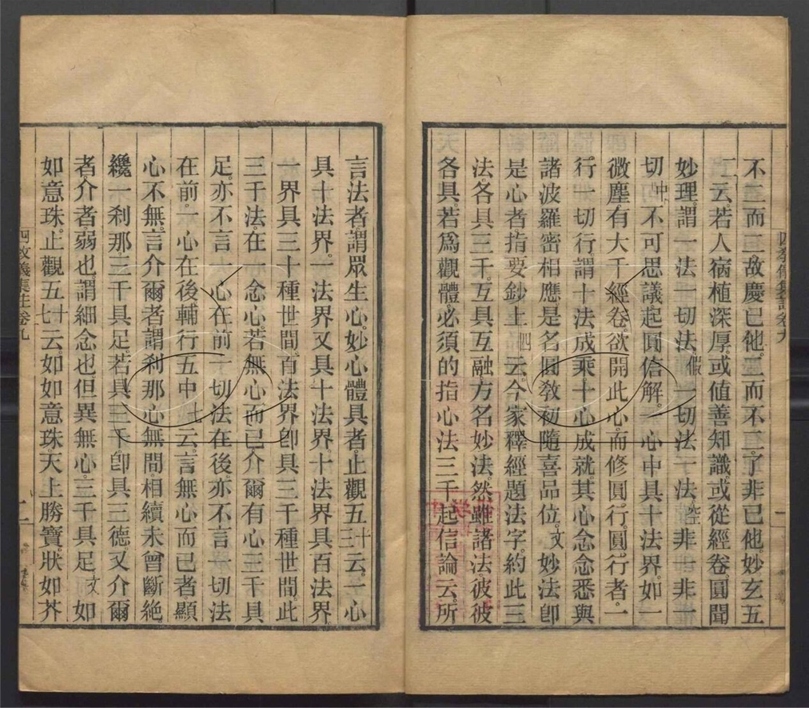 不二而二故慶已他二而不二了非已他妙玄五
二云若人宿植深厚或值善知識或從經卷圓聞
妙理謂一法一切法假一切法一法空非一非一
切中不可思議起圓信解一心中具十法界如一
微塵有大千經卷欲開此心而修圓行圓行者一
行一切行謂十法成乘十心成就其心念念悉與
諸波羅密相應是名圓教初隨喜品位文妙法卽
是心者指要鈔上四云今家釋經題法字約此三
法各具三千互具互融方名妙法然雖諸法彼彼
各具若爲觀體必須的指心法三千起信論云所
言法者謂眾生心妙心體具者止觀五三十云一心
具十法界一法界又具十法界十法界具百法界
一界具三十種世間百法界卽具三千種世間此
三千法在一念心若無心而已介爾有心三千具
足亦不言一心在前一切法在後亦不言一切法
在前一心在後輔行五中七云言無心而已者顯
心不無言介爾者謂剎那心無間相續未曾斷絶
纔一剎那三千具足若具三千卽具三德又介爾
者介者弱也謂細念也但異無心三千具足文如
如意珠止觀五七十云如如意珠天上勝寶狀如芥
四教儀集註卷九